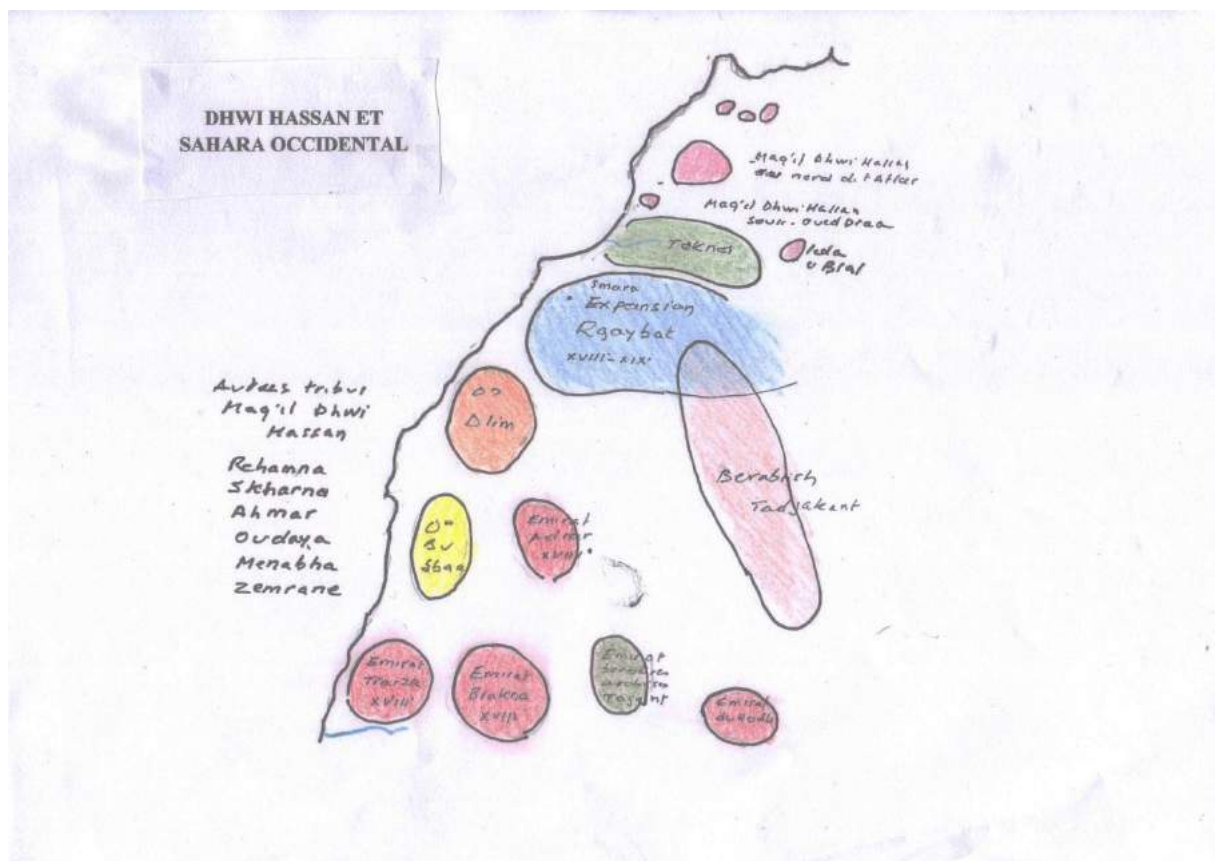 DHWI HASSAN ET
SAHARA OCCIDENTAL
Maq'il Dhwi Hassan
au nord de l'Atlas
Maq'il Dhwi Hassan
Souss - Oued Draa
Tekna
Ida
U Blal
Smara
Expansion
Rgaybat
XVIII-XIX°
Autres tribus
Maq'il Dhwi
Hassan
Rehamna
Skharna
Ahmar
Oudaya
Menabha
Zemrane
Dlim
Berabish
Tadjakant
Bu
Sbaa
Emirat
Adrar
XVIII°
Emirat
Trarza
XVIII°
Emirat
Brakna
XVIII°
Emirat
Tagant
Emirat
du Hodh